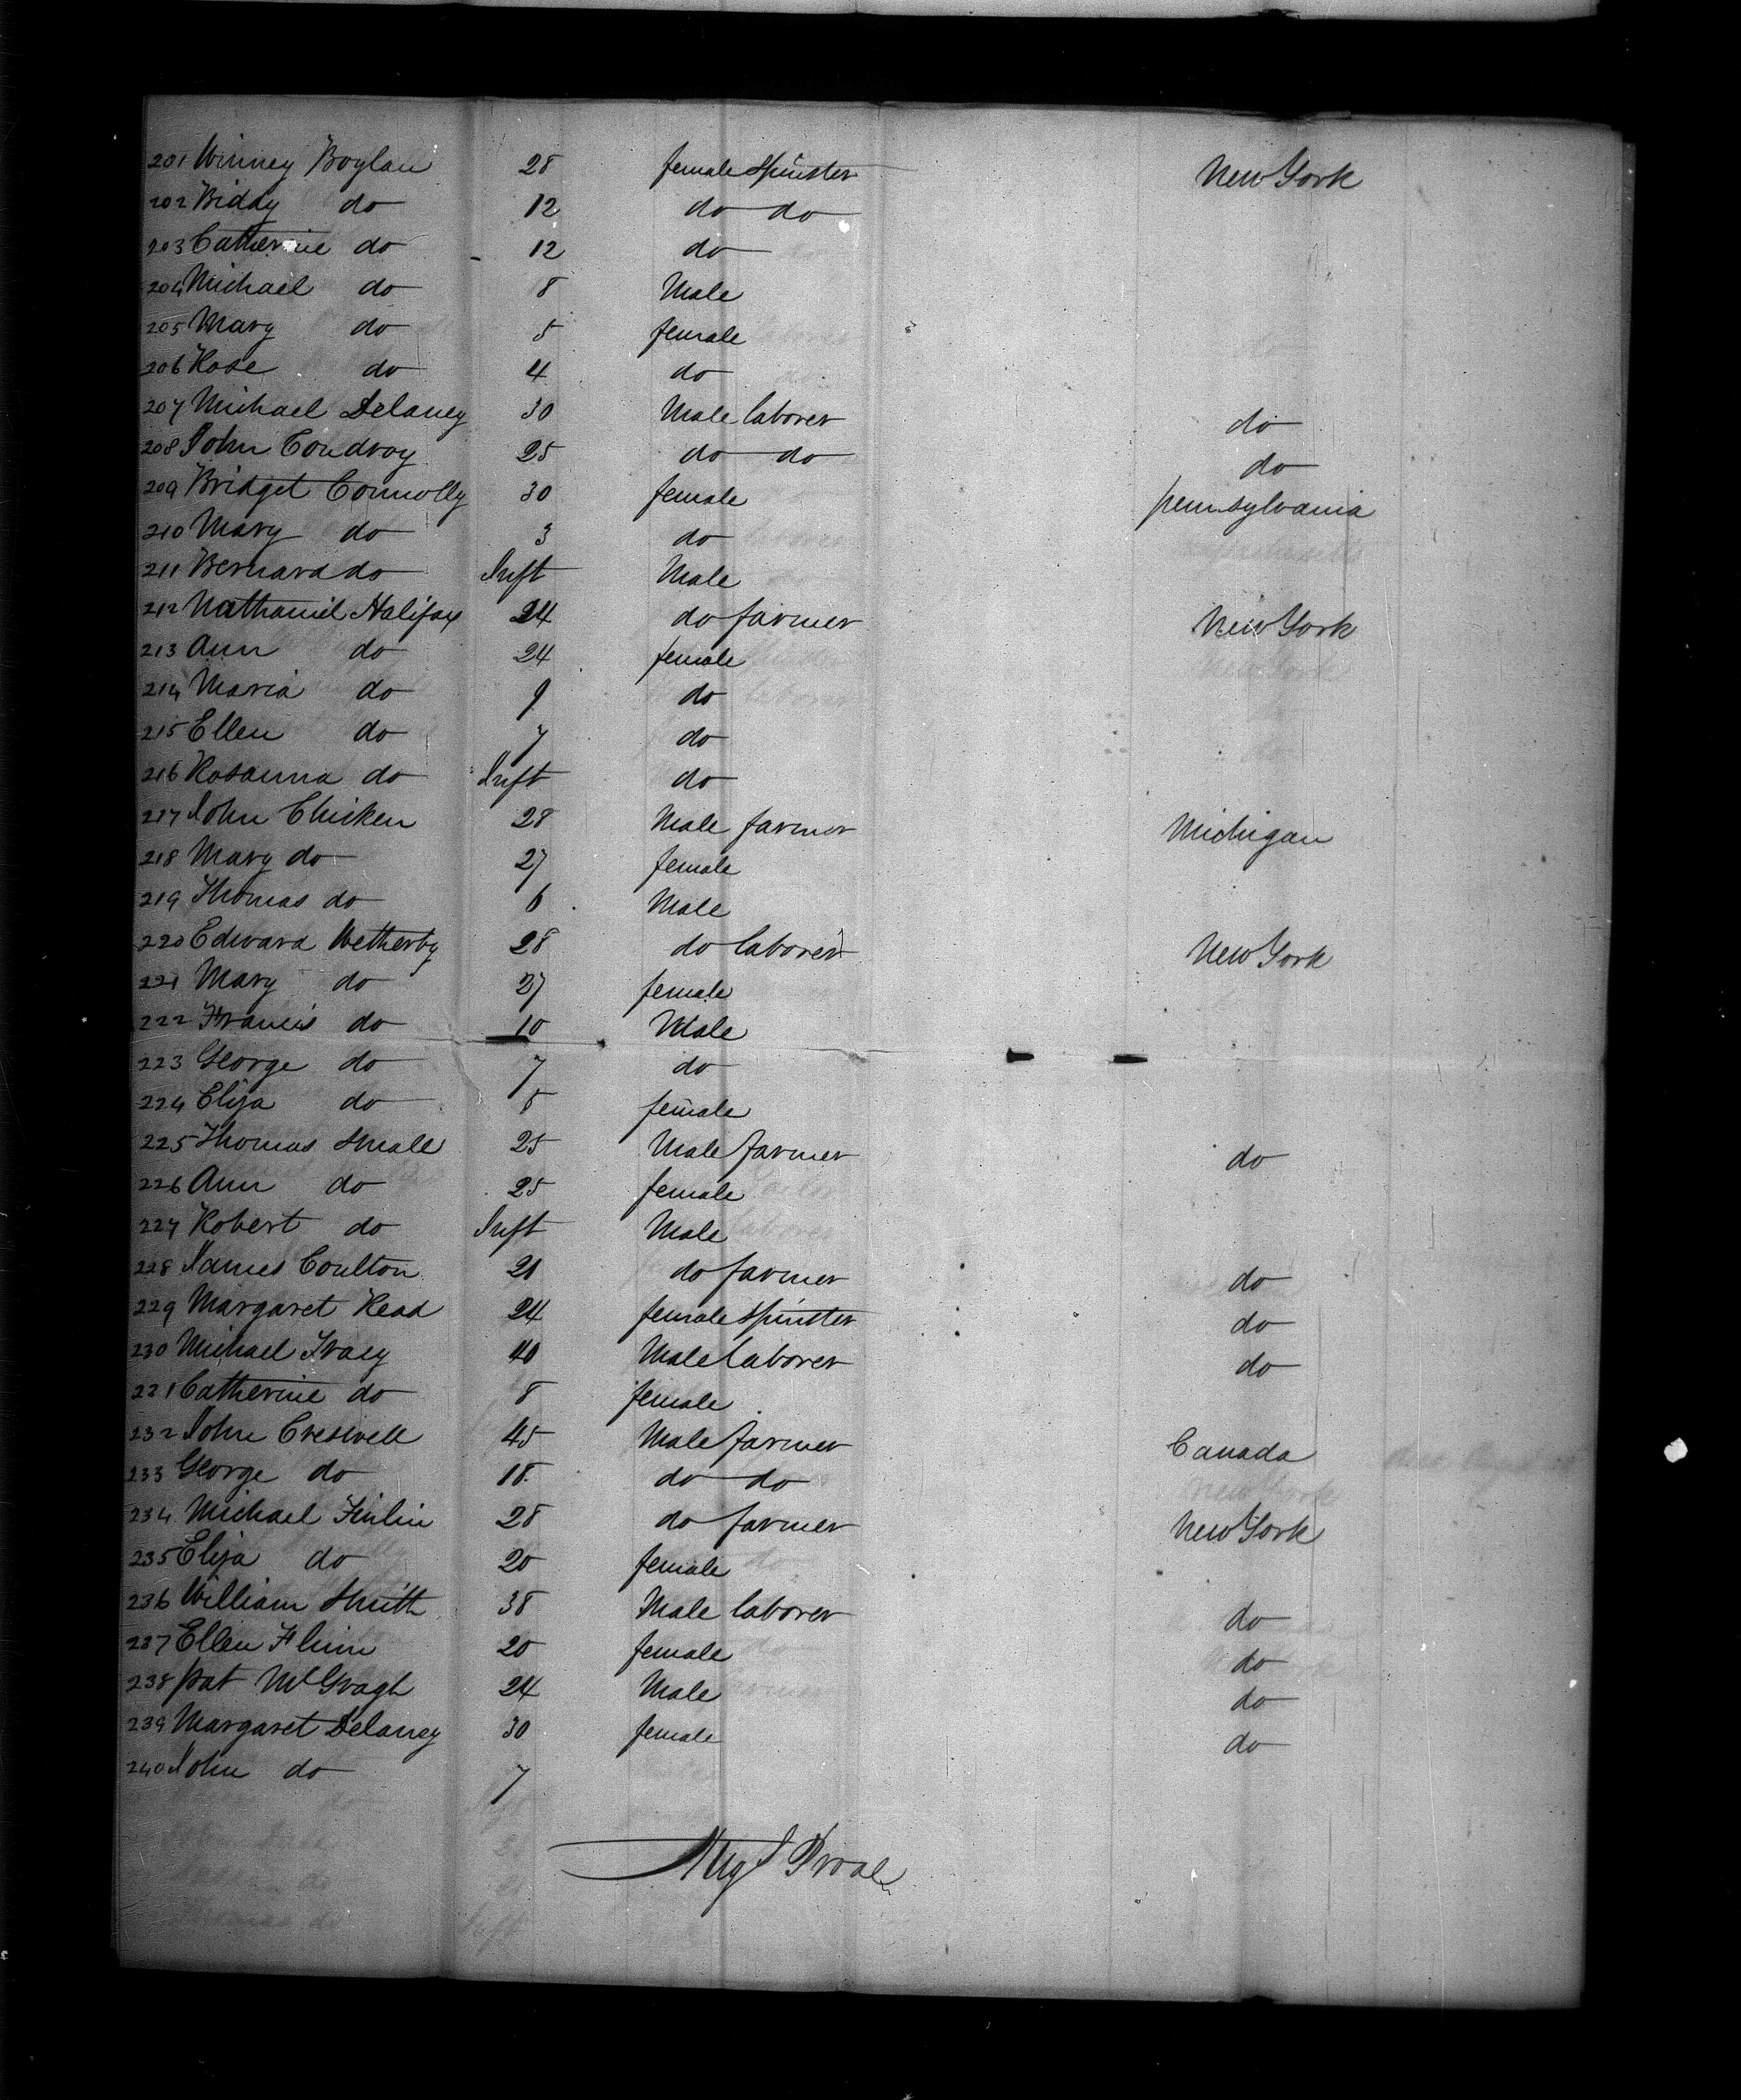 201 Winney Boylan 28 female Spinster New York
202 Biddy do 12 do do
203 Catherine do 12 do
204 Michael do 8 Male
205 Mary do 5 female
206 Rose do 4 do
207 Michael Delaney 30 Male laborer do
208 John Condroy 25 do do do
209 Bridget Connolly 30 female pennsylvania
210 Mary do 3 do
211 Bernard do Inft Male
212 Nathaniel Halifax 24 do farmer New York
213 Ann do 24 female
214 Maria do 9 do
215 Ellen do 7 do
216 Rosanna do Inft do
217 John Chicken 28 Male farmer Michigan
218 Mary do 27 female
219 Thomas do 6 Male
220 Edward Wetherby 28 do laborer New York
221 Mary do 27 female
222 Francis do 10 Male
223 George do 7 do
224 Eliza do 5 female
225 Thomas Smale 25 Male farmer do
226 Ann do 25 female
227 Robert do Inft Male
228 James Coulton 21 do farmer do
229 Margaret Read 24 female Spinster do
230 Michael Tracy 40 Male laborer do
231 Catherine do 8 female
232 John Creswell 45 Male farmer Canada
233 George do 18 do do
234 Michael Finlin 28 do farmer New York
235 Eliza do 20 female
236 William Smith 38 Male laborer do
237 Ellen Flinn 20 female do
238 pat McGragh 24 Male do
239 Margaret Delaney 30 female do
240 John do 7